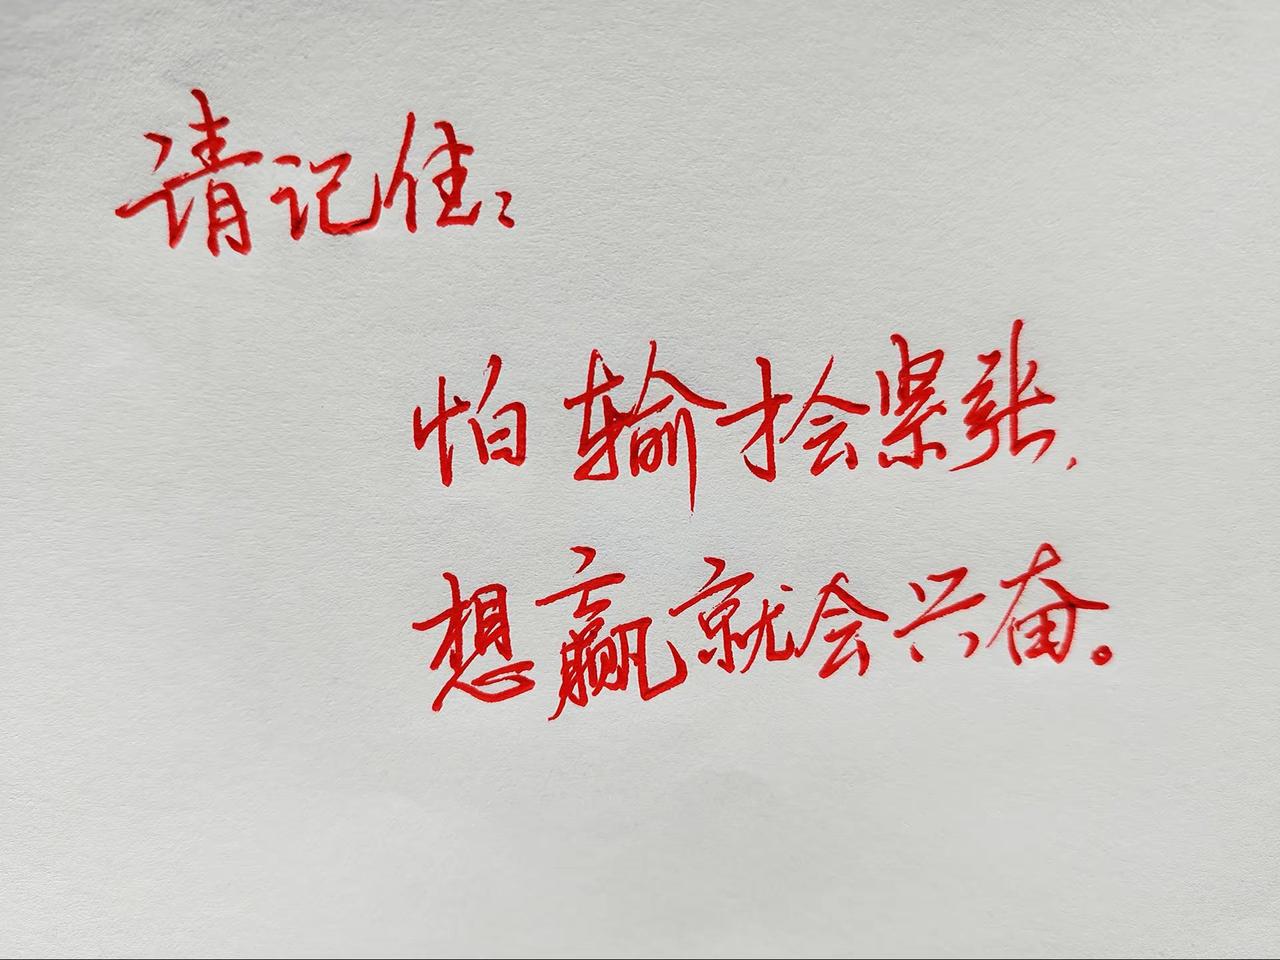 请记住：
怕输才会紧张，
想赢就会兴奋。